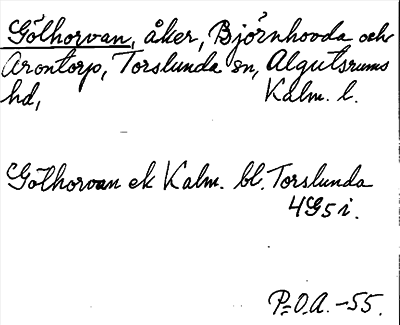 Gölhorvan, åker, Björnhovda och
Arontorp, Torslunda sn, Algutsrums
hd, Kalm. l.
Gölhorvan ek Kalm. bl. Torslunda
4G5i.
P=O.A. -55.